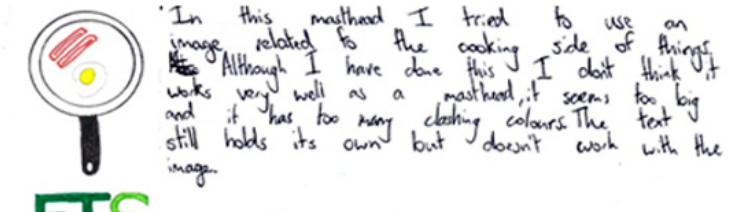 In this masthead I tried to use an
image related to the cooking side of things.
Although I have done this I don't think it
works very well as a masthead, it seems too big
and it has too many clashing colours. The text
still holds its own but doesn't work with the
image.
ETS